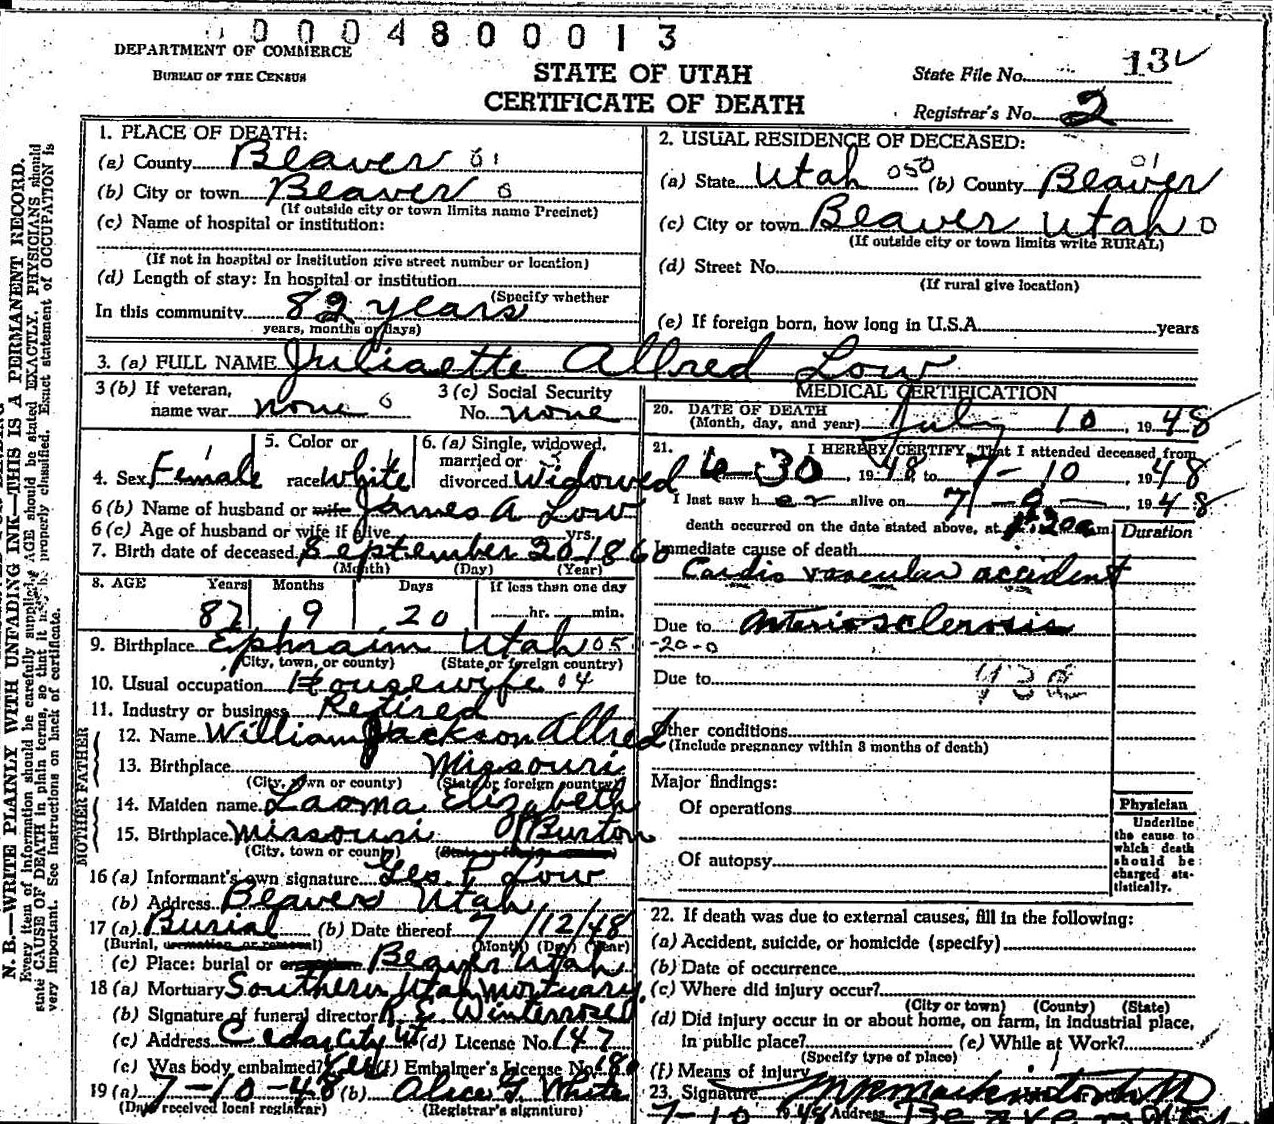 0004800013
DEPARTMENT OF COMMERCE
BUREAU OF THE CENSUS
STATE OF UTAH
CERTIFICATE OF DEATH
State File No. 13
Registrar's No. 2
N. B.—WRITE PLAINLY WITH UNFADING INK—THIS IS A PERMANENT RECORD.
Every item of information should be carefully supplied. AGE should be stated EXACTLY. PHYSICIANS should
state CAUSE OF DEATH in plain terms, so that it may be properly classified. Exact statement of OCCUPATION is
very important. See instructions on back of certificate.
1. PLACE OF DEATH:
(a) County Beaver 01
(b) City or town Beaver 0
(If outside city or town limits name Precinct)
(c) Name of hospital or institution:
(If not in hospital or institution give street number or location)
(d) Length of stay: In hospital or institution
(Specify whether
In this community 82 years
years, months or days)
2. USUAL RESIDENCE OF DECEASED:
(a) State Utah 050 (b) County Beaver 01
(c) City or town Beaver Utah 0
(If outside city or town limits write RURAL)
(d) Street No.
(If rural give location)
(e) If foreign born, how long in U.S.A. years
3. (a) FULL NAME Juliaette Allred Low
3 (b) If veteran,
name war none 0
3 (c) Social Security
No. none
4. Sex Female
5. Color or
race White
6. (a) Single, widowed,
married or
divorced Widowed
6 (b) Name of husband or wife James A Low
6 (c) Age of husband or wife if alive yrs.
7. Birth date of deceased September 20 1860
(Month) (Day) (Year)
8. AGE Years Months Days If less than one day
87 9 20 hr. min.
9. Birthplace Ephraim Utah 05
(City, town, or county) (State or foreign country)
10. Usual occupation Housewife 04
11. Industry or business Retired
FATHER
12. Name William Jackson Allred
13. Birthplace Missouri
(City, town or county) (State or foreign country)
MOTHER
14. Maiden name Laoma Elizabeth
15. Birthplace Missouri Burton
(City, town or county)
16 (a) Informant's own signature Geo. P Low
(b) Address Beaver Utah
17 (a) Burial (b) Date thereof 7/12/48
(Burial, cremation or removal) (Month) (Day) (Year)
(c) Place: burial or Beaver Utah
18 (a) Mortuary Southern Utah Mortuary
(b) Signature of funeral director Winterrose
(c) Address Cedar City Ut (d) License No. 147
(e) Was body embalmed? Yes (f) Embalmer's License No.
19 (a) 7-10-48 (b) Alice G. White
(Date received local registrar) (Registrar's signature)
MEDICAL CERTIFICATION
20. DATE OF DEATH
(Month, day, and year) July 10, 1948
21. I HEREBY CERTIFY, That I attended deceased from
6-30, 1948 to 7-10, 1948
I last saw her alive on 7-9-, 1948
death occurred on the date stated above, at m
Duration
Immediate cause of death
Cardio vascular accident
Due to Arteriosclerosis
-20-0
Due to
Other conditions
(Include pregnancy within 3 months of death)
Major findings:
Of operations
Of autopsy
Physician
Underline
the cause to
which death
should be
charged sta-
tistically.
22. If death was due to external causes, fill in the following:
(a) Accident, suicide, or homicide (specify)
(b) Date of occurrence
(c) Where did injury occur?
(City or town) (County) (State)
(d) Did injury occur in or about home, on farm, in industrial place,
in public place? (e) While at Work?
(Specify type of place)
(f) Means of injury
23. Signature
7-10 48 Address Beaver